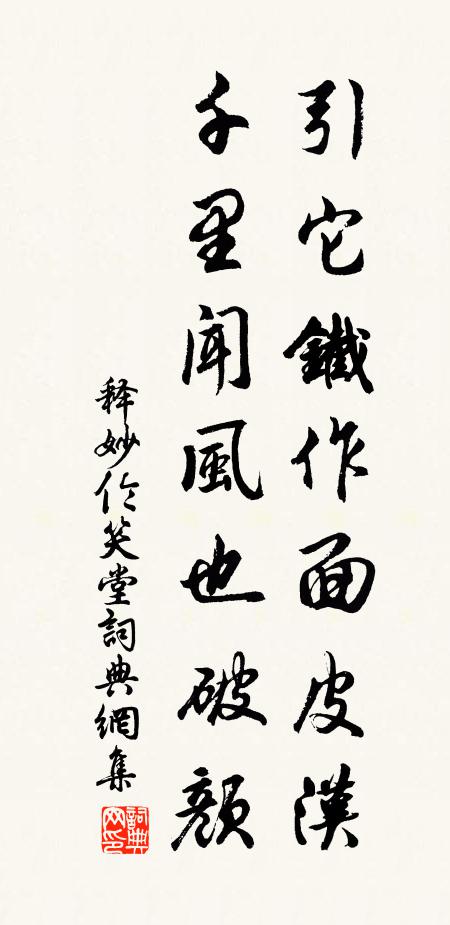 引它鐵作面皮漢
千里聞風也破顏
释妙伦笑堂詞典網集
詞典网印